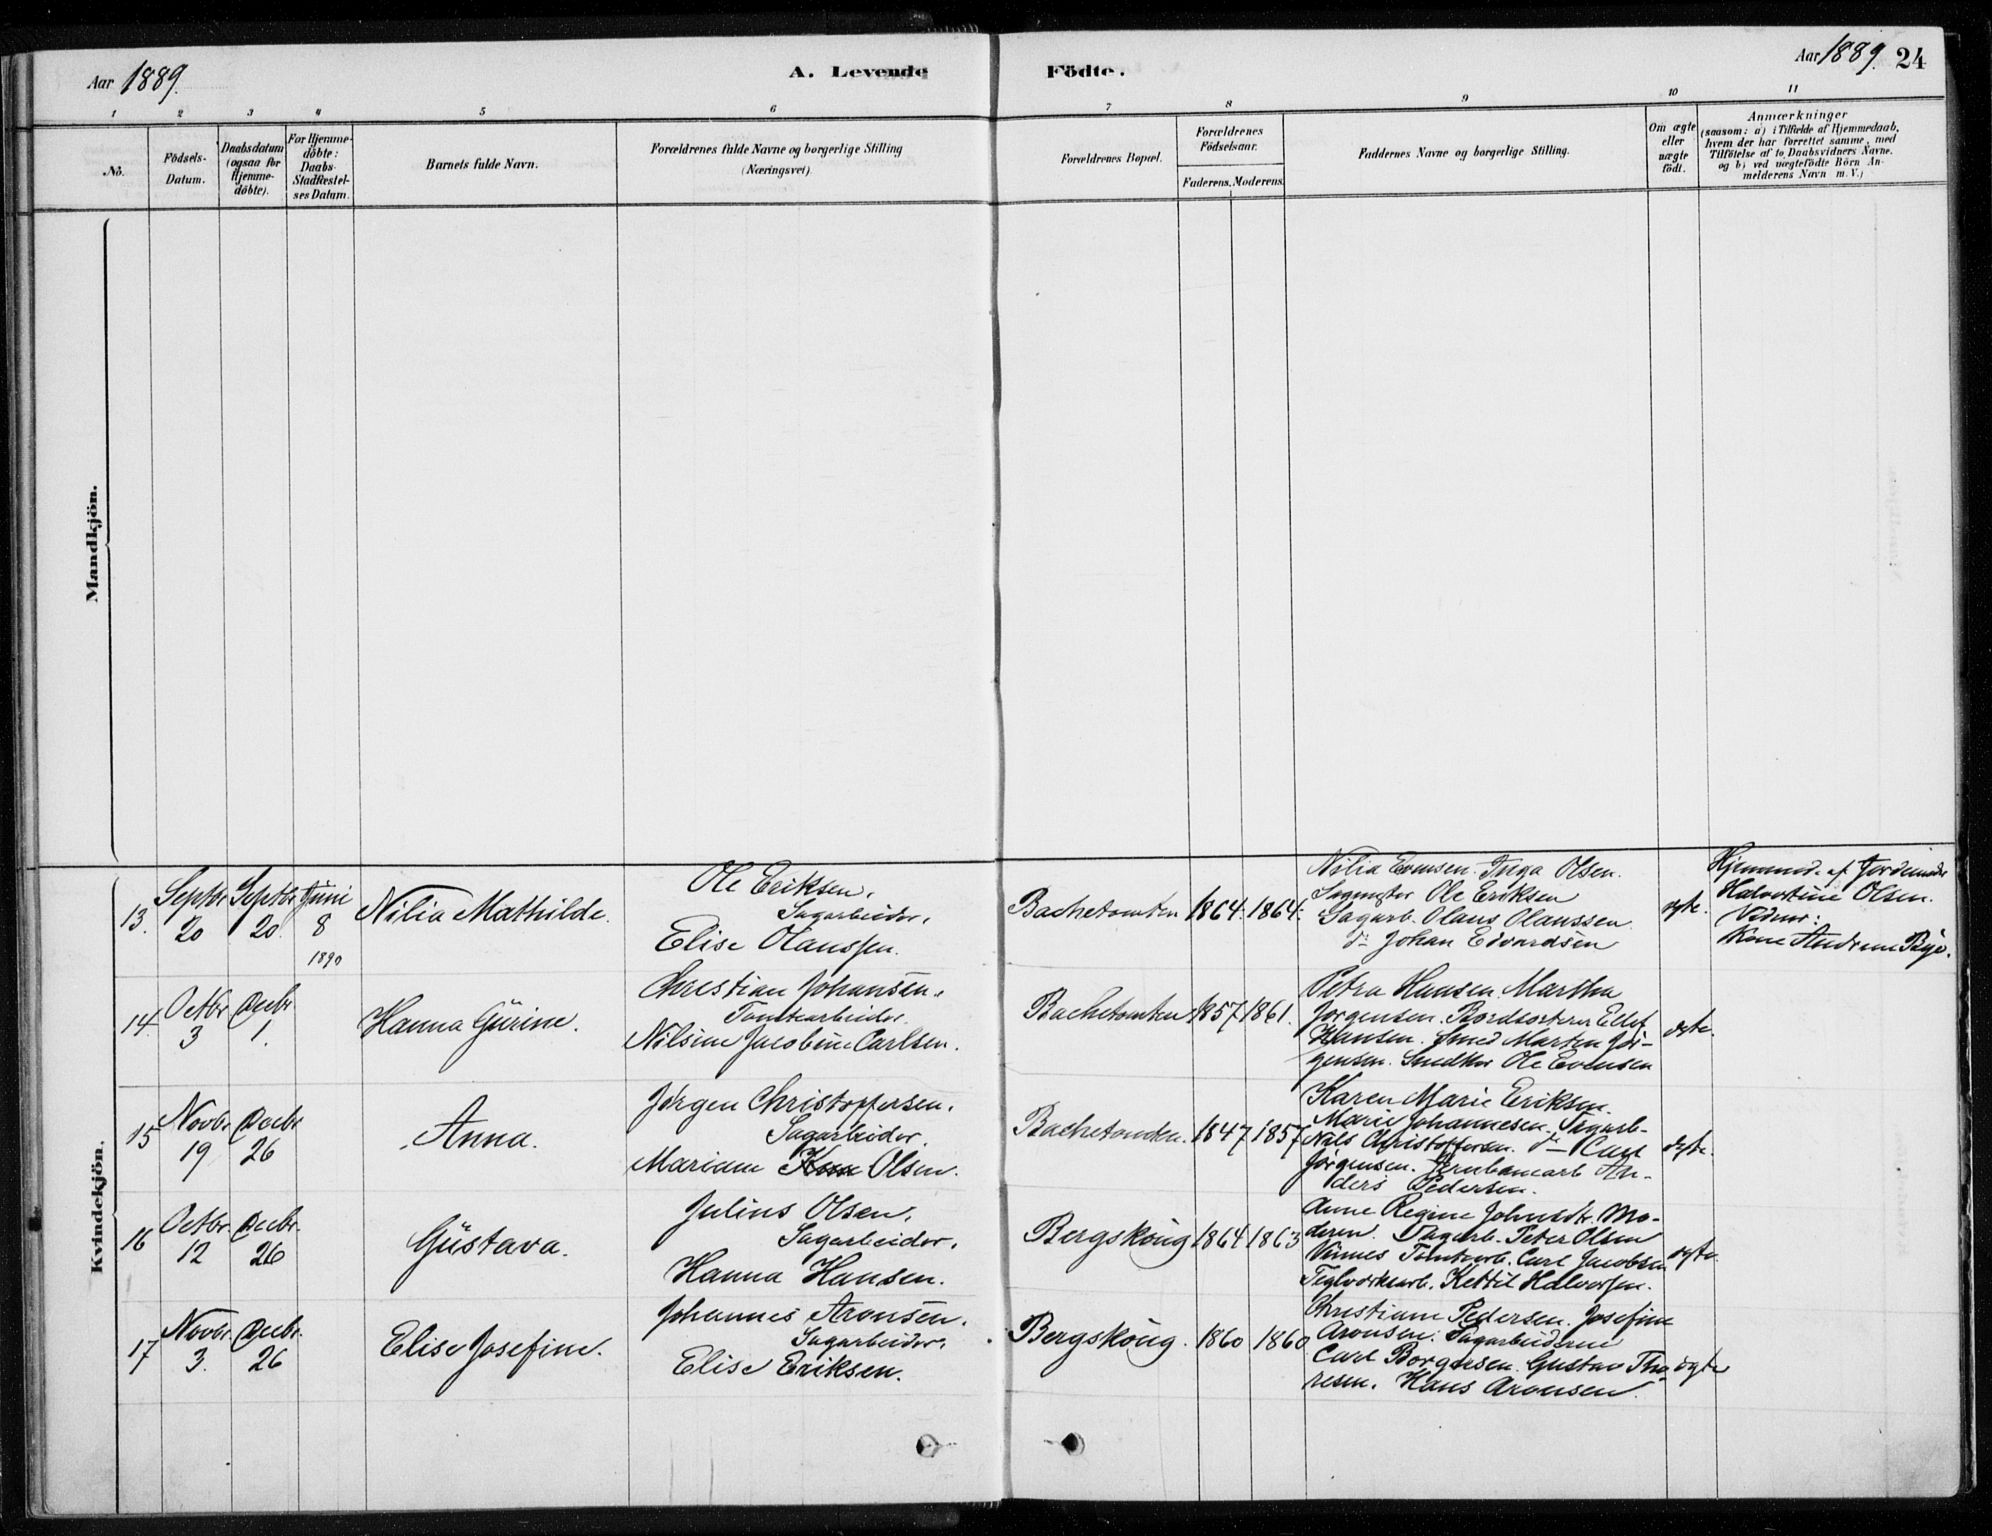 Aar 1889.
A. Levende Födte.
Aar 1889. 24
1 2 3 4 5 6 7 8 9 10 11
No.
Födsels-
Datum.
Daabsdatum
(ogsaa for
Hjemme-
döbte).
For Hjemme-
döbte:
Daabs-
Stadfæstel-
ses Datum.
Barnets fulde Navn.
Forældrenes fulde Navne og borgerlige Stilling
(Næringsvei).
Forældrenes Bopæl.
Forældrenes
Födselsaar.
Faderens. Moderens.
Faddernes Navne og borgerlige Stilling.
Om ægte
eller
uægte
födt.
Anmærkninger
(saasom: a) i Tilfælde af Hjemmedaab,
hvem der har forrettet samme, med
Tilföielse af to Daabsvidners Navne,
og b) ved uægtefödte Börn An-
melderens Navn m.V.)
Mandkjön.
Kvindekjön.
13.
Septbr
20
Septbr
20.
Juni
8
1890
Nilia Mathilde.
Ole Eriksen.
Sagarbeider.
Elise Olaussen.
Bachetomten
1864. 1864.
Nilia Evensen. Inga Olsen.
Sagmster Ole Eriksen
Sagarb. Olaus Olaussen
do Johan Edvardsen
ægte.
Hjemmed. af Jordemoder
Halvordine Olsen.
Vidner:
Kone Andrene Bye.
14
Octbr
3
Decbr
1.
Hanna Gurine.
Christian Johansen.
Tomtearbeider.
Nilsine Jacobine Carlsen.
Bachetomten
1857 1861.
Petra Hansen. Martha
Jørgensen. Bordsorterer Ellef
Hansen. Smed Marten Jør-
gensen. Smed Ole Evensen
ægte.
15
Novbr
19
Decbr
26
Anna.
Jørgen Christoffersen.
Sagarbeider.
Mariane Olsen.
Bachetomten.
1847 1857
Karen Marie Eriksen.
Marie Johannesen. Sagarb.
Nils Christoffersen. do Carl
Jørgensen. Jernbanearb. An-
ders Pedersen.
ægte.
16
Octbr.
12
Decbr.
26
Gustava.
Julius Olsen.
Sagarbeider.
Hanna Hansen.
Bergskoug
1864 1863
Anne Regine Johnsdtr. Mo-
deren. Dagarb. Peter Olsen
Vinnes Tomtearb. Carl Jacobsen
Teglværksarb. Kettil Halvorsen.
ægte.
17
Novbr.
3.
Decbr.
26
Elise Josefine.
Johannes Aronsen.
Sagarbeider.
Elise Eriksen.
Bergskoug.
1860 1860
Christiane Pedersen. Josefine
Aronsen. Sagarbeiderne
Carl Borgersen. Gustav Tho-
resen. Hans Aronsen.
ægte